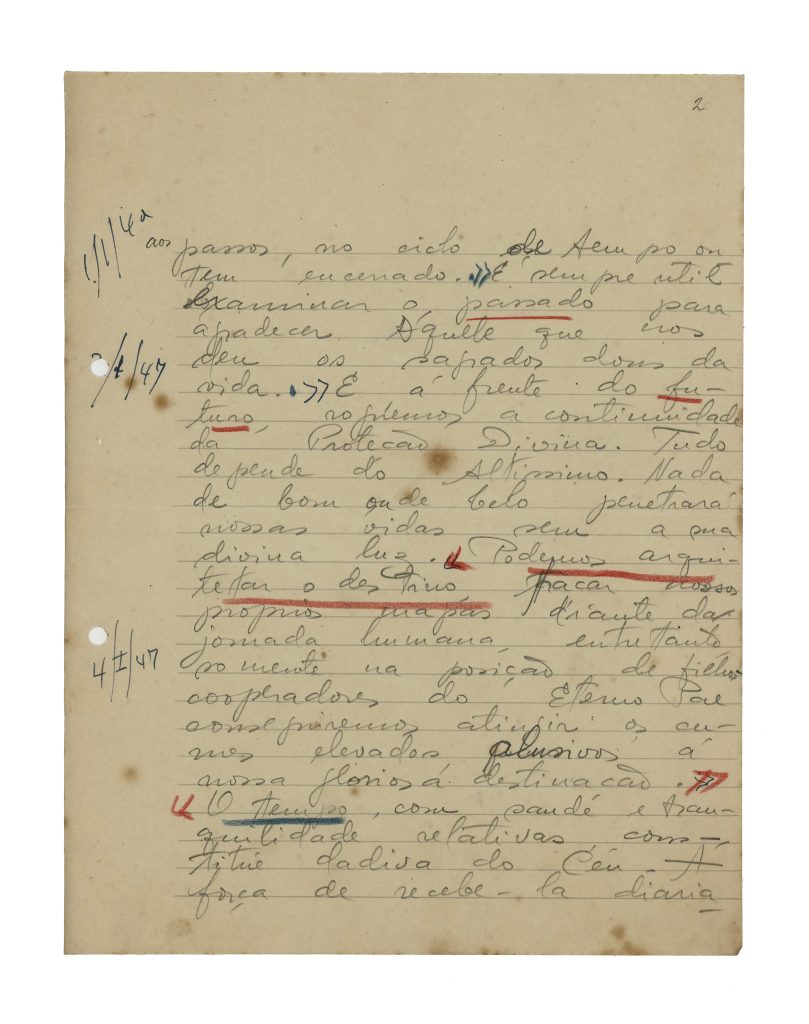 2
1/1/42
aos passos, no ciclo de tempo on
tem encerrado. .»É sempre util
Examinar o passado para
agradecer Áquele que nos
deu os sagrados dons da
2/I/47
vida. .»É á frente do fu-
turo, roguemos a continuidade
da Proteção Divina. Tudo
depende do Altissimo. Nada
de bom ou de belo penetrará
nossas vidas sem a sua
divina luz. « Podemos arqui-
tetar o destino traçar nossos
proprios mapas diante da
jornada humana, entretanto
4/I/47
somente na posição de filhos
cooperadores do Eterno Pae
conseguiremos atingir os cu-
mes elevados alusivos á
nossa gloriosa destinação. »
« O tempo, com saude e tran-
quilidade relativas, cons-
titue dadiva do Céu. A
força de recebe-la diaria-